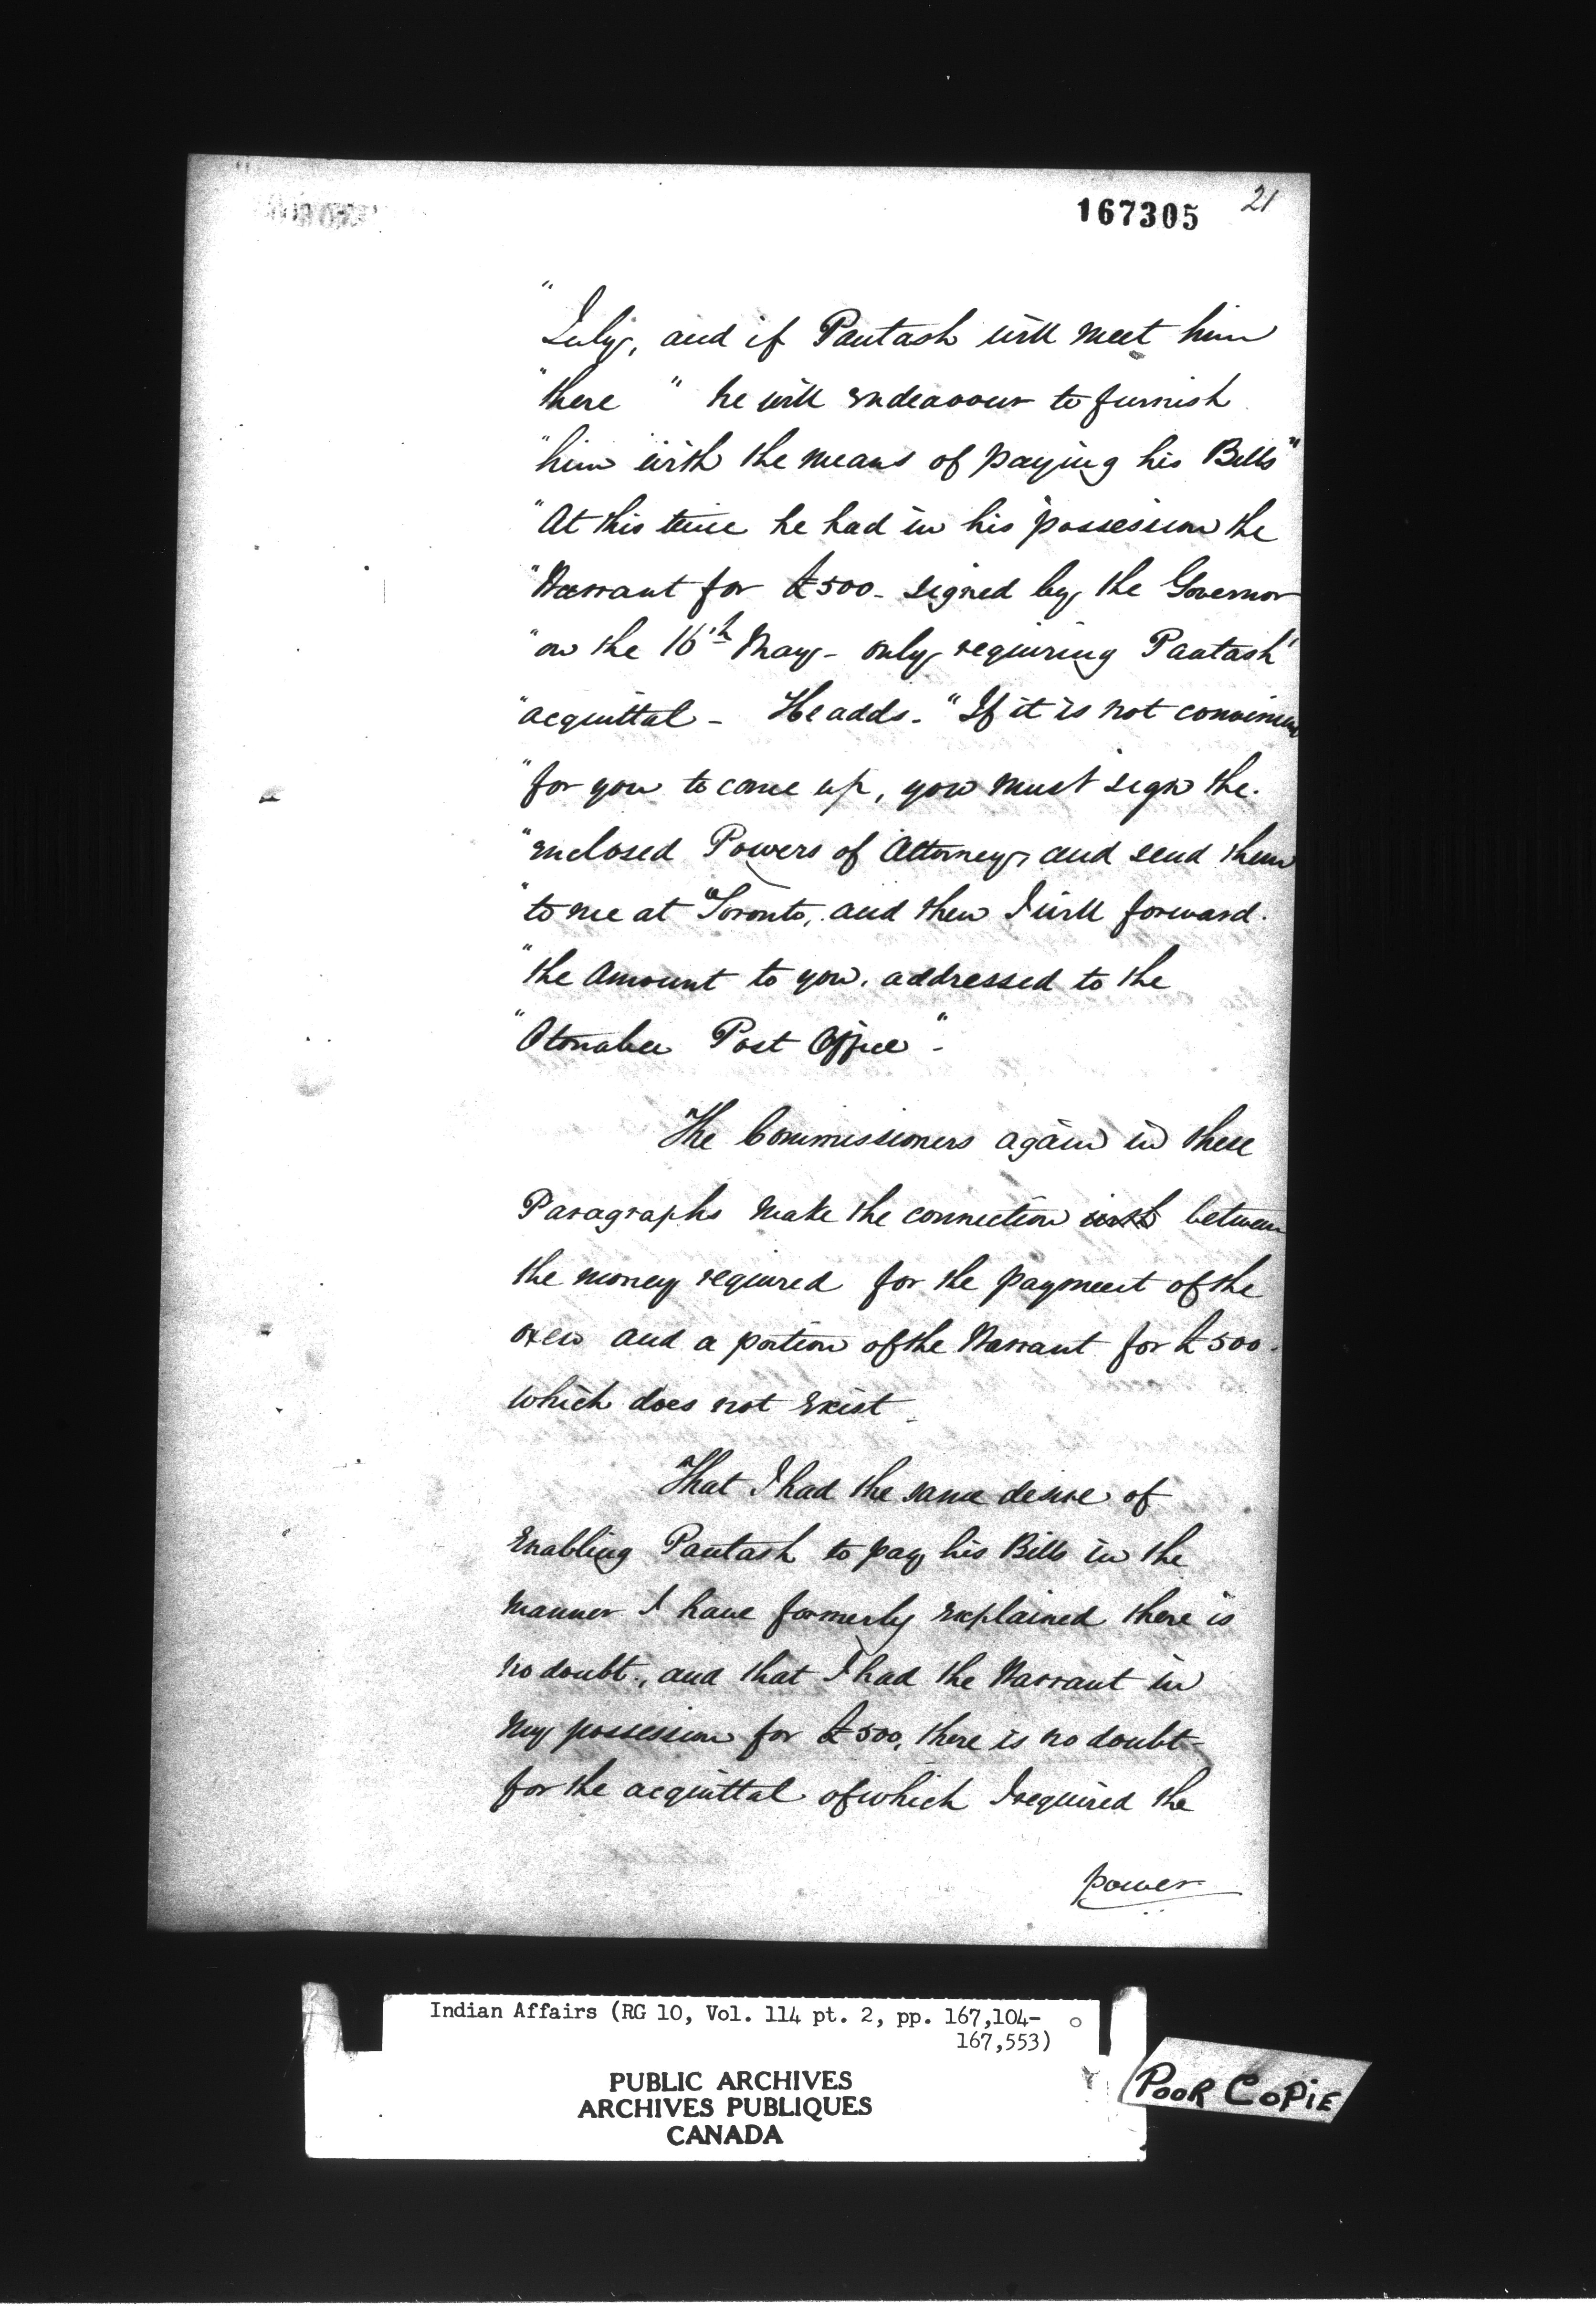 167305
21
"July, and if Pautash will meet him
"there " he will endeavour to furnish
"him with the means of paying his Bills"
"At this time he had in his possession the
"Warrant for £500 - signed by the Governor
"on the 16th May - only requiring Pautash'
"acquittal - He adds. "If it is not convenient
"for you to come up, you must sign the.
"enclosed Powers of Attorney, and send them
"to me at Toronto, and then I will forward.
"the amount to you. addressed to the
"Otonabee Post Office" -
The Commissioners again in these
Paragraphs make the connection with between
the money required for the payment of the
oxen and a portion of the Warrant for £500.
which does not exist -
That I had the same desire of
Enabling Pautash to pay his Bills in the
manner I have formerly explained there is
no doubt., and that I had the Warrant in
my possession for £500, there is no doubt -
for the acquittal of which I required the
power
Indian Affairs (RG 10, Vol. 114 pt. 2, pp. 167,104-
167,553)
PUBLIC ARCHIVES
ARCHIVES PUBLIQUES
CANADA
POOR COPIE